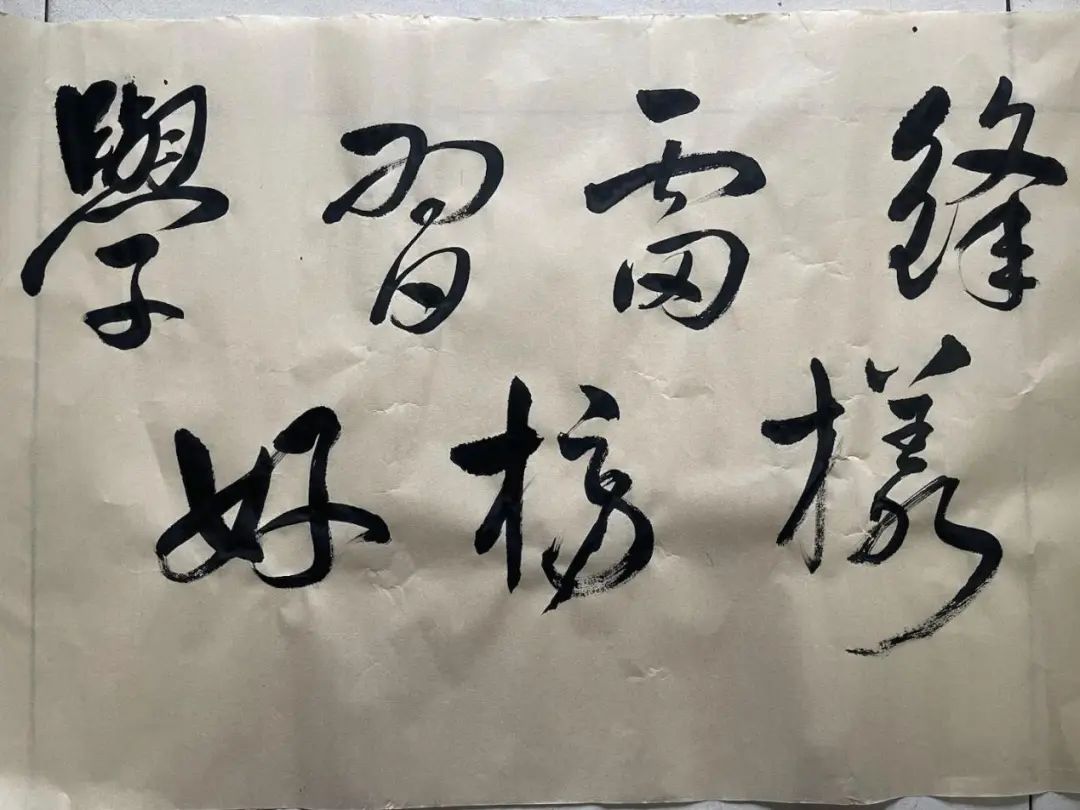 學習雷鋒
好榜樣